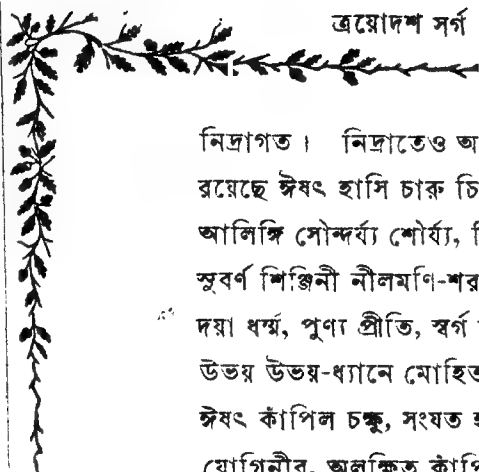 ত্রয়োদশ সর্গ
নিদ্রাগত। নিদ্রাতেও
রয়েছে ঈষৎ হাসি চারু
আলিঙ্গি সৌন্দর্য্য শৌর্য্য,
সুবর্ণ শিঞ্জিনী নীলমণি-শর
দয়া ধর্ম্ম, পুণ্য প্রীতি, স্বর্গ
উভয় উভয়-ধ্যানে মোহিত
ঈষৎ কাঁপিল চক্ষু, সংযত
যোগিনীর, অলক্ষিত